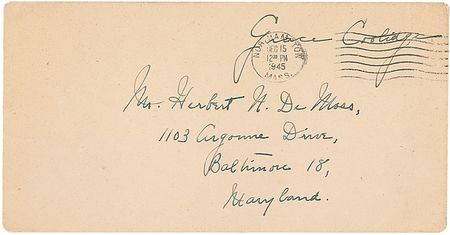 Grace Coolidge
NORTHAMPTON
DEC 15
12 30 PM
1945
MASS.
Mr. Herbert N. De Moss,
1103 Argonne Drive,
Baltimore 18,
Maryland.